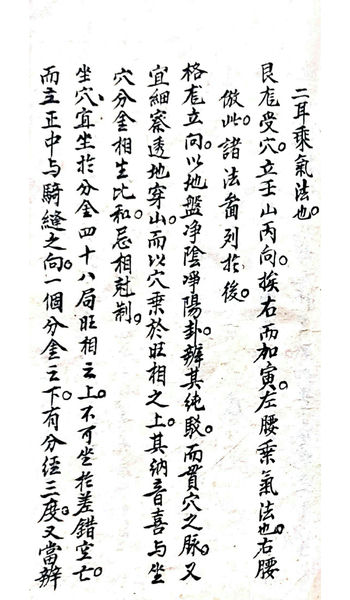 二耳乘氣法也
艮龙受穴立壬山丙向挨右而加寅左腰乘氣法也右腰
倣此諸法啚列扵後
格龙立向以地盤净陰淨陽卦辨其純駁而貫穴之脉又
宜細察透地穿山而以穴乘於旺相之上其納音喜与坐
穴分金相生比和忌相尅制
坐穴宜坐扵分金四十八局旺相之上不可坐扵差錯空亡
而立正中与騎縫之向一個分金之下有分经三度又當辦